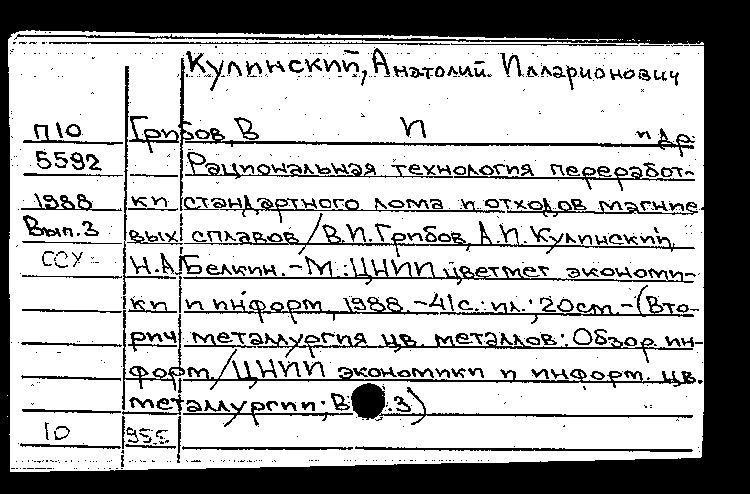 Кулинский, Анатолий Илларионович
П10 Грибов, В И и др.
5592 Рациональная технология переработ-
1988 ки стандартного лома и отходов магние-
Вып.3 вых сплавов / В.И. Грибов, А.И. Кулинский,
ССУ- Н.А. Белкин. - М.: ЦНИИ цветмет экономи-
ки и информ, 1988. - 41с.: ил.; 20см - (Вто-
рич металлургия цв. металлов: Обзор. ин-
форм. / ЦНИИ экономики и информ. цв.
металлургии; В .3)
10 955